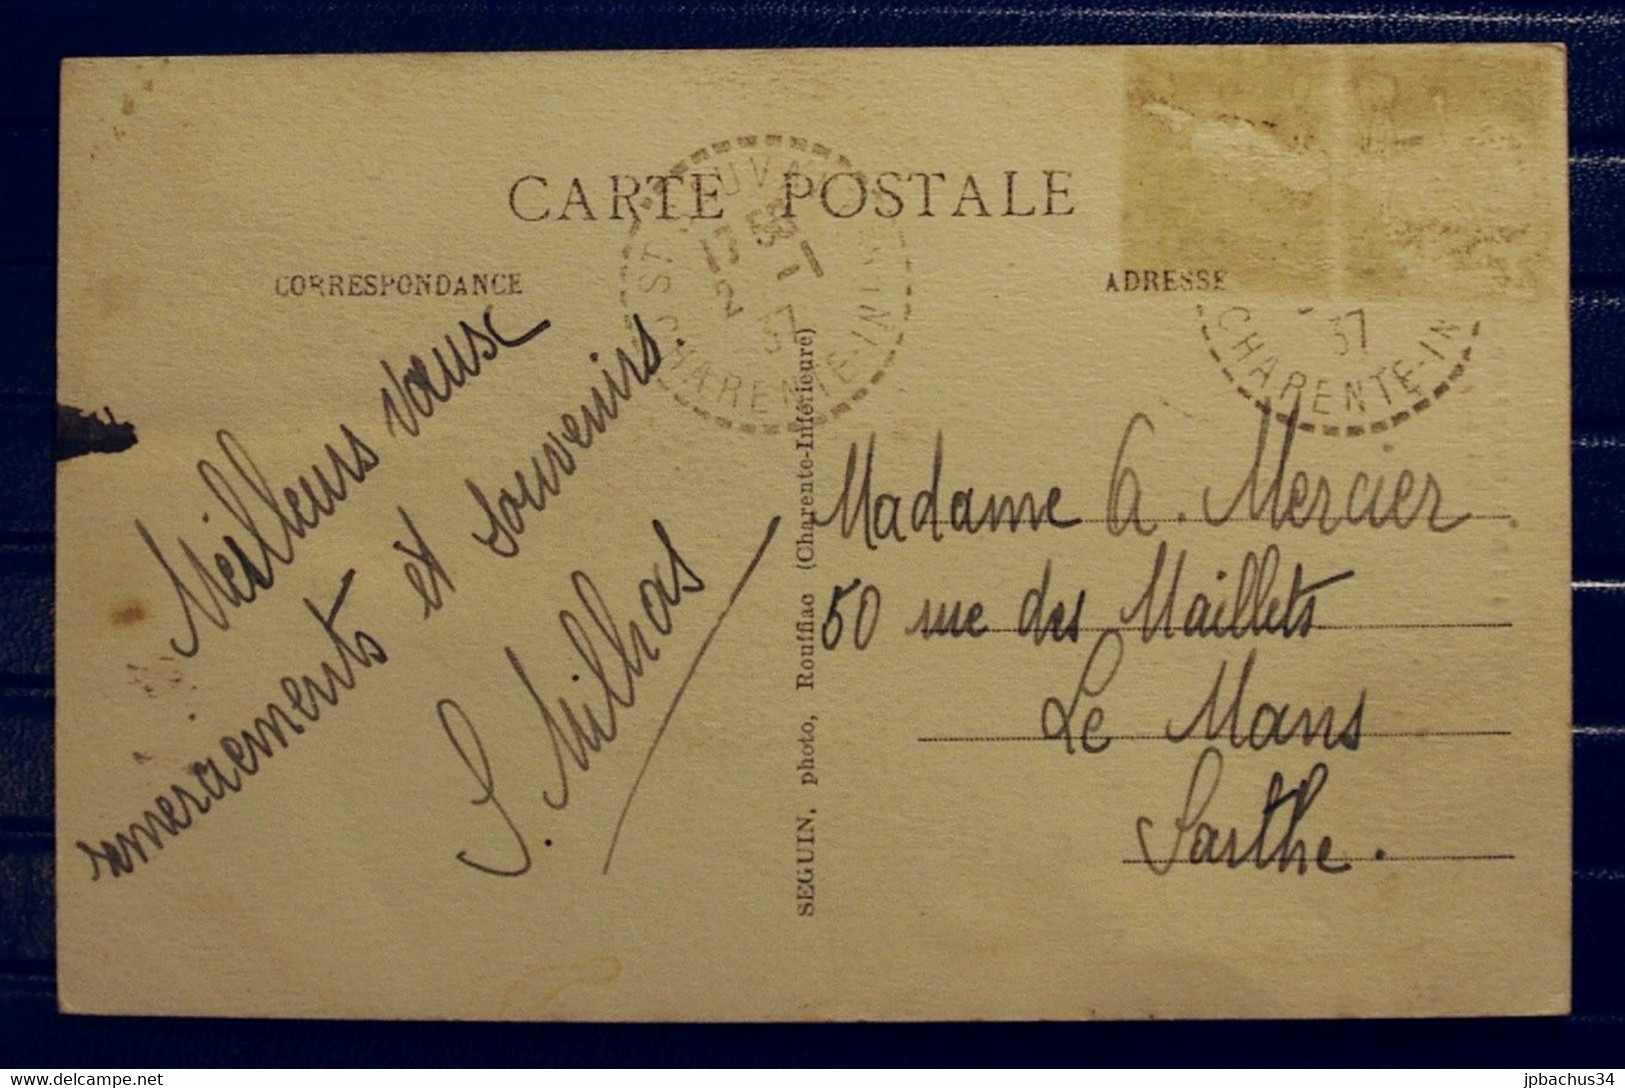 CARTE POSTALE
CORRESPONDANCE
ADRESSE
17 50
2 - 1
37
CHARENTE-IN
37
CHARENTE-IN
Meilleurs vœux
remerciements et souvenirs.
S. Milhas
SEGUIN, photo, Rouffiac (Charente-Inférieure)
Madame A. Mercier
50 rue des Maillets
Le Mans
Sarthe.
www.delcampe.net
jpbachus34